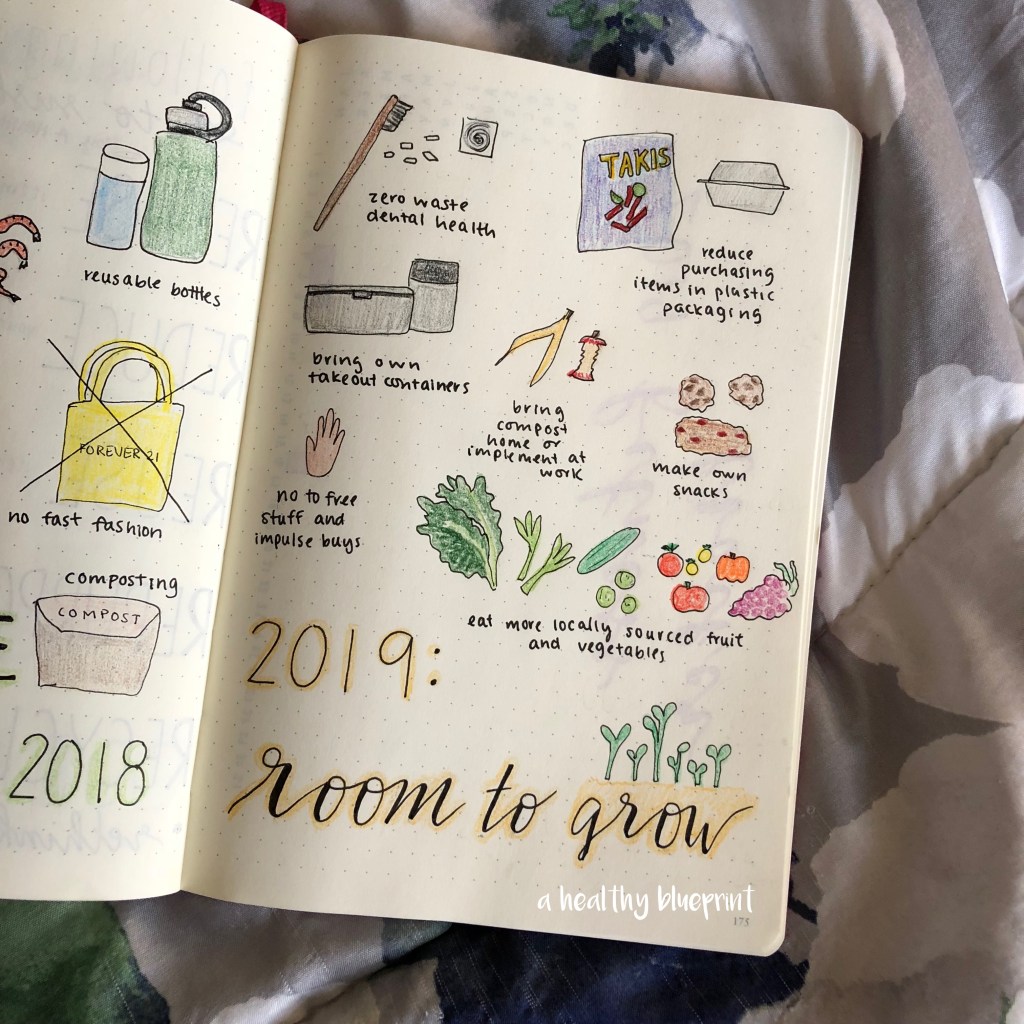 reusable bottles
FOREVER 21
no fast fashion
composting
COMPOST
2018
zero waste
dental health
TAKIS
reduce
purchasing
items in plastic
packaging
bring own
takeout containers
bring
compost
home or
implement at
work
make own
snacks
no to free
stuff and
impulse buys
eat more locally sourced fruit
and vegetables
2019:
room to grow
a healthy blueprint
173